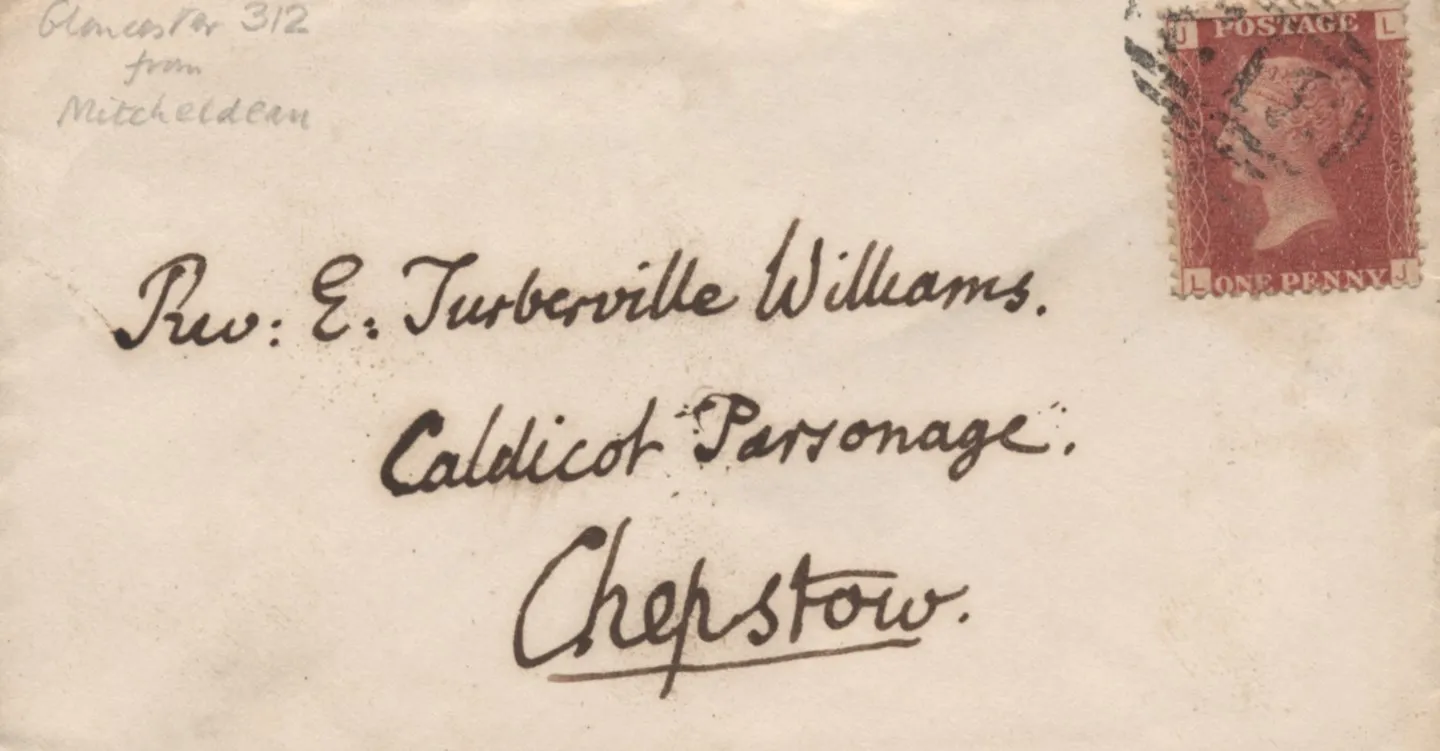 Gloucester 312
from
Mitcheldean
J POSTAGE L
L ONE PENNY J
Rev: E: Turberville Williams.
Caldicot Parsonage.
Chepstow.